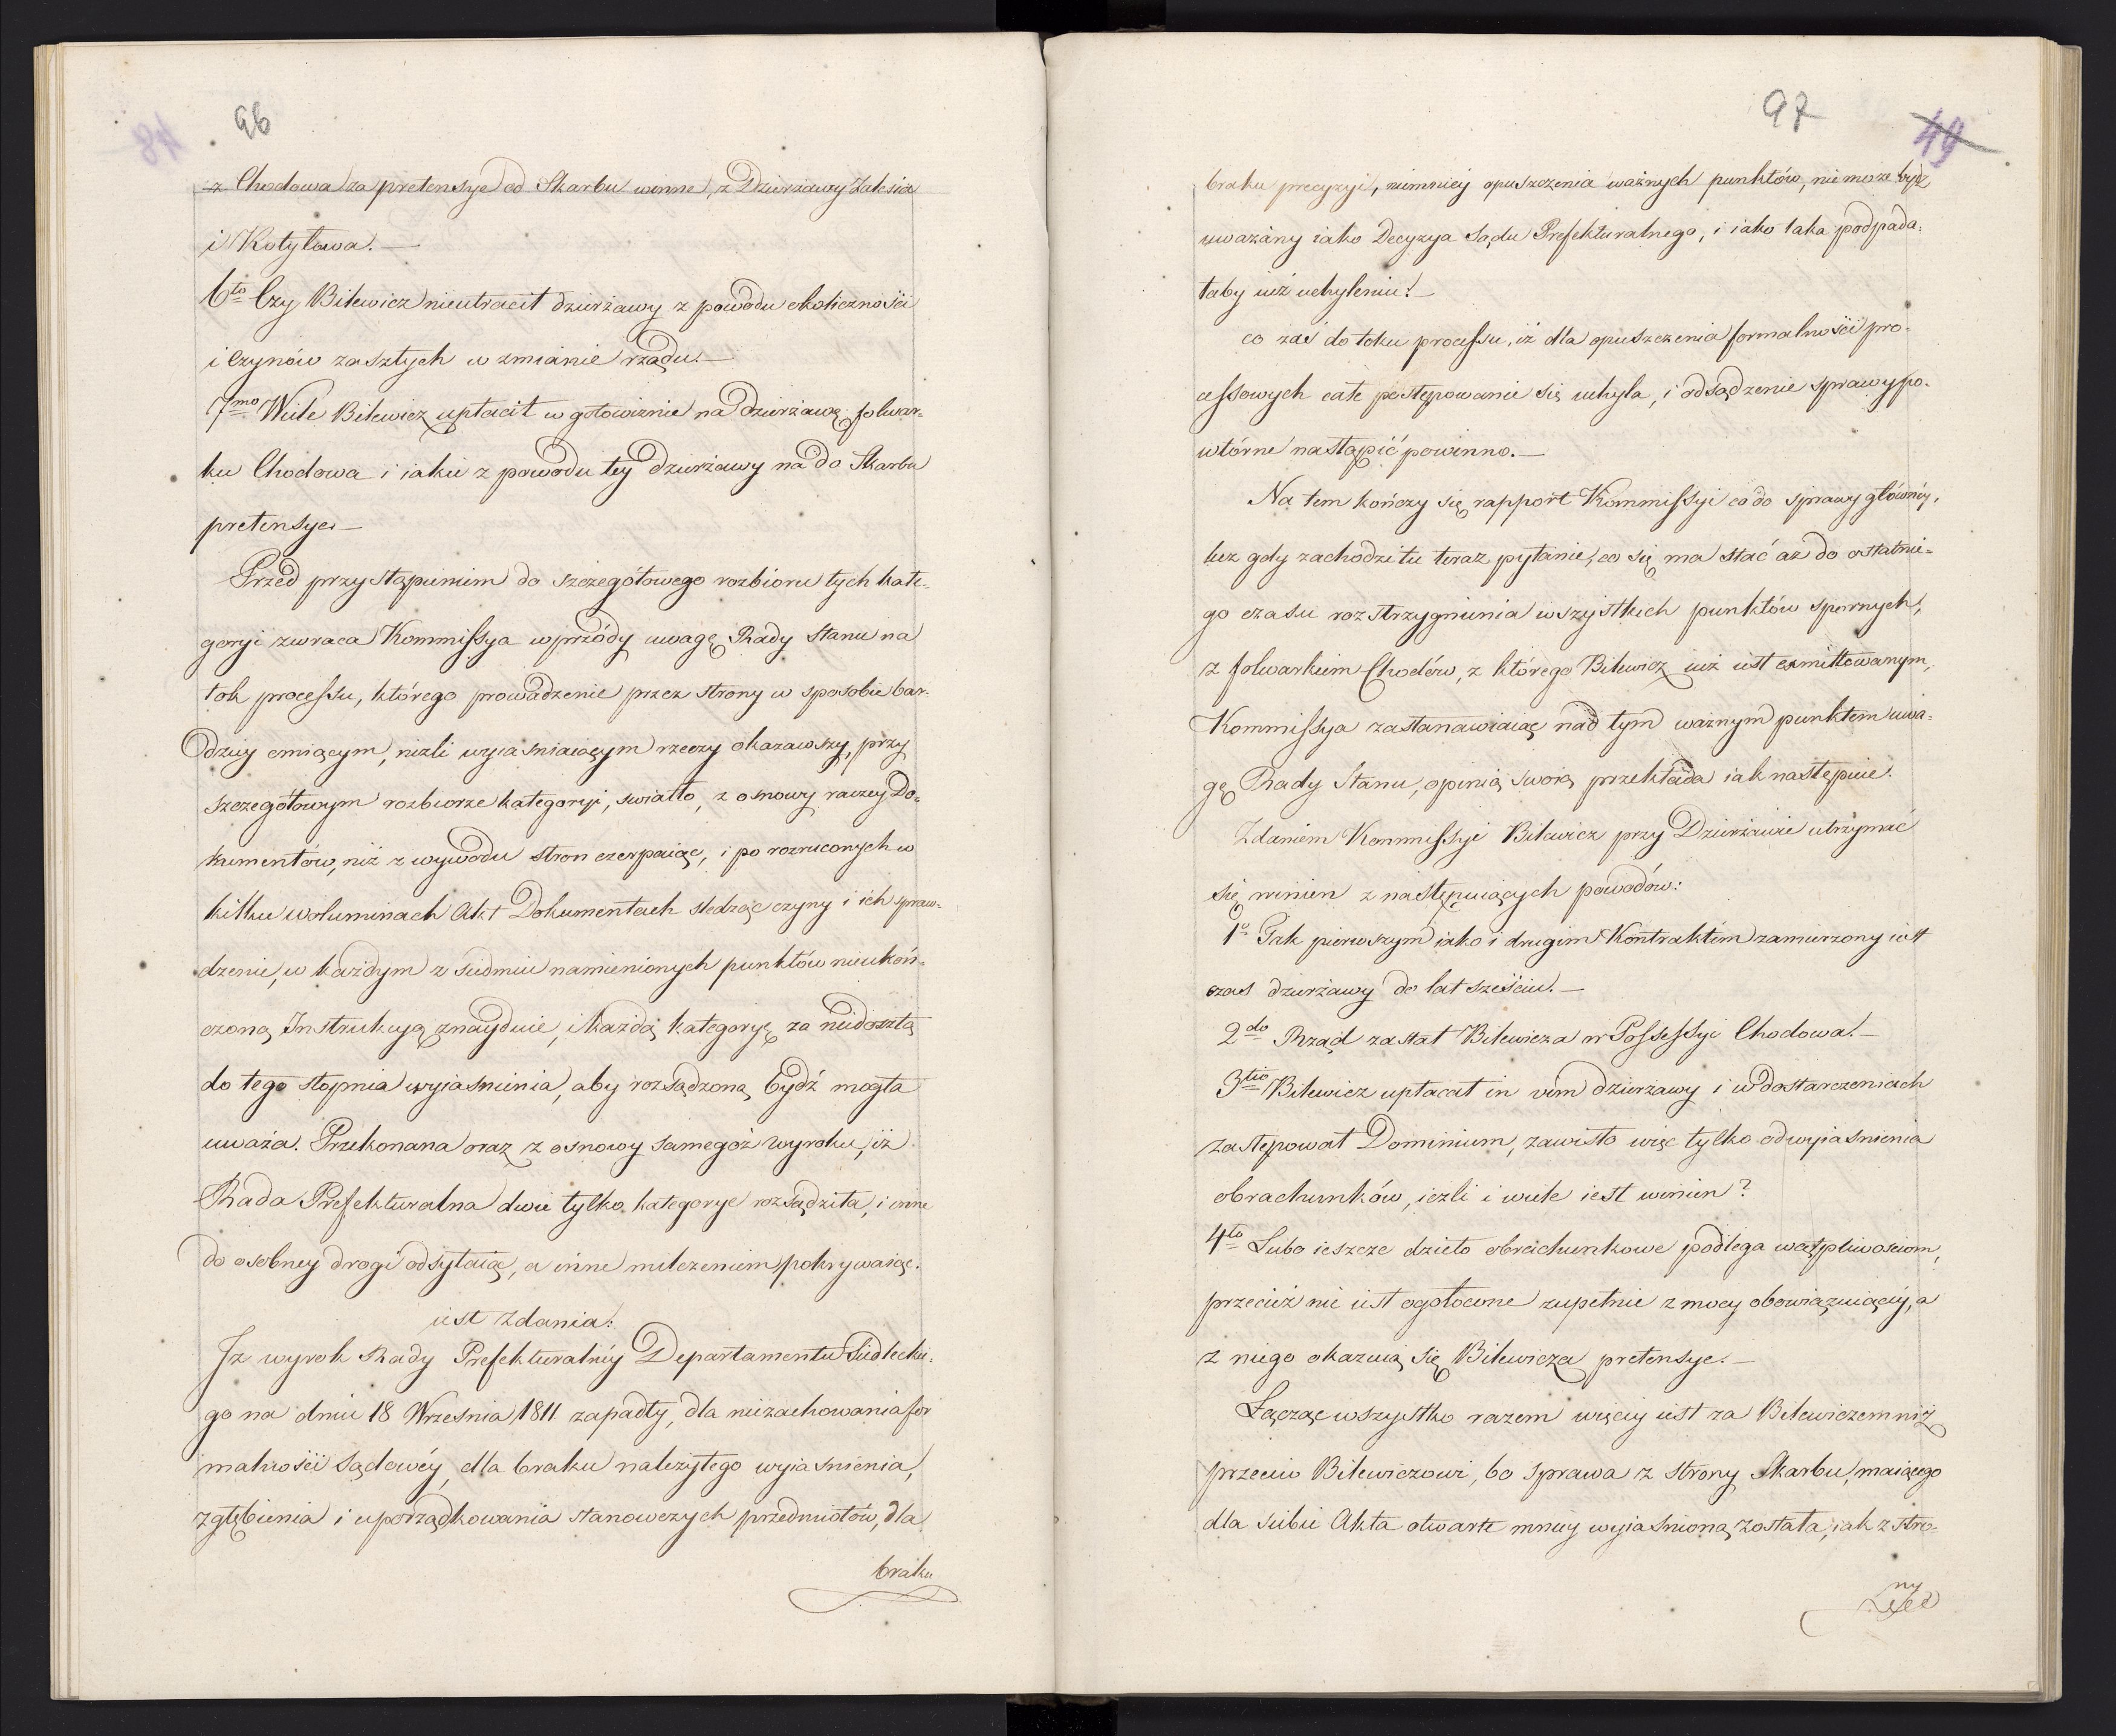 96
z Chodowa za pretensye od Skarbu winne, z Dzierżawy Zalesia
i Kotylowa. —
6to Czy Bilewicz nieutracił dzierżawy z powodu okoliczności
i Czynów zaszłych w zmianie rządu. —
7mo Wiele Bilewicz upłacił w gotowiznie na dzierżawę folwar-
ku Chodowa i iakie z powodu tey dzierżawy na do Skarbu
pretensye. —
Przed przystąpieniem do szczegółowego rozbioru tych kate-
goryi zwraca Kommissya wprzódy uwagę Rady Stanu na
tok processu, którego prowadzenie przez strony w sposobie bar-
dziey cmiącym, niżli wyiasniaiącym rzeczy okazawszy, przy
szczegółowym rozbiorze kategoryi, swiatło, z osnowy raczey Do-
kumentów, niż z wywodu stron czerpaiąc, i po rozrzuconych w
kilku woluminach Akt Dokumentach sledząc czyny i ich spraw-
dzenie, w każdym z siedmiu namienionych punktów nieukoń-
czoną Instrukcyą znayduie, i każdą kategoryę za niedoszłą
do tego stopnia wyiasnienia, aby rozsądzoną bydź mogła
uważa. Przekonana oraz z osnowy samegoż wyroku, iż
Rada Prefekturalna dwie tylko kategorye rozsądziła, i inne
do osobney drogi odsyłaiąc, a inne milczeniem pokrywaiąc.
iest zdania:
Iż wyrok Rady Prefekturalnéy Departamentu Siedleckie-
go na dniu 18 Września 1811 zapadły, dla niezachowania for
malności sądowéy, dla braku należytego wyiasnienia,
zgłębienia i uporządkowania stanowczych przedmiotów, dla
braku
97
49
braku precyzyi, niemniéy opuszczenia ważnych punktów, nie może bydź
uważany iako Decyzya Sądu Prefekturalnego, i iako taka podpada-
łaby iuż uchyleniu. —
co zaś do toku processu, iż dla opuszczenia formalności pro-
cessowych całe postępowanie się uchyla, i odsądzenie sprawy po-
wtórne nastąpić powinno. —
Na tem kończy się rapport Kommissyi co do sprawy głównéy,
lecz gdy zachodzi tu teraz pytanie, co się ma stać aż do ostatnie-
go czasu rozstrzygnienia wszystkich punktów spornych,
z folwarkiem Chodów, z którego Bilewicz iuż iest exmittowanym,
Kommissya zastanawiaiąc nad tym ważnym punktem uwa-
gę Rady Stanu, opinią swoią przekłada iak następuie.
Zdaniem Kommissyi Bilewicz przy Dzierżawie utrzymać
się winien z następuiących powodów:
1o Tak pierwszym iako i drugim Kontraktem zamierzony iest
czas dzierżawy do lat sześciu. —
2do Rząd zastał Bilewicza w Possessyi Chodowa. —
3tio Bilewicz upłacał in vim dzierżawy i w dostarczeniach
zastępował Dominium, zawisło więc tylko od wyiasnienia
obrachunków, ieżli i wiele iest winien?
4to Lubo ieszcze dzieło obrachunkowe podlega wątpliwosciom,
przecież nie iest ogołocone zupełnie z mocy obowiązuiącéy, a
z niego okazuią się Bilewicza pretensye. —
Łącząc wszystko razem więcéy iest za Bilewiczem niż
przeciw Bilewiczowi, bo sprawa z strony Skarbu, maiącego
dla siebie Akta otwarte mniéy wyiasnioną została, iak z stro-
ny